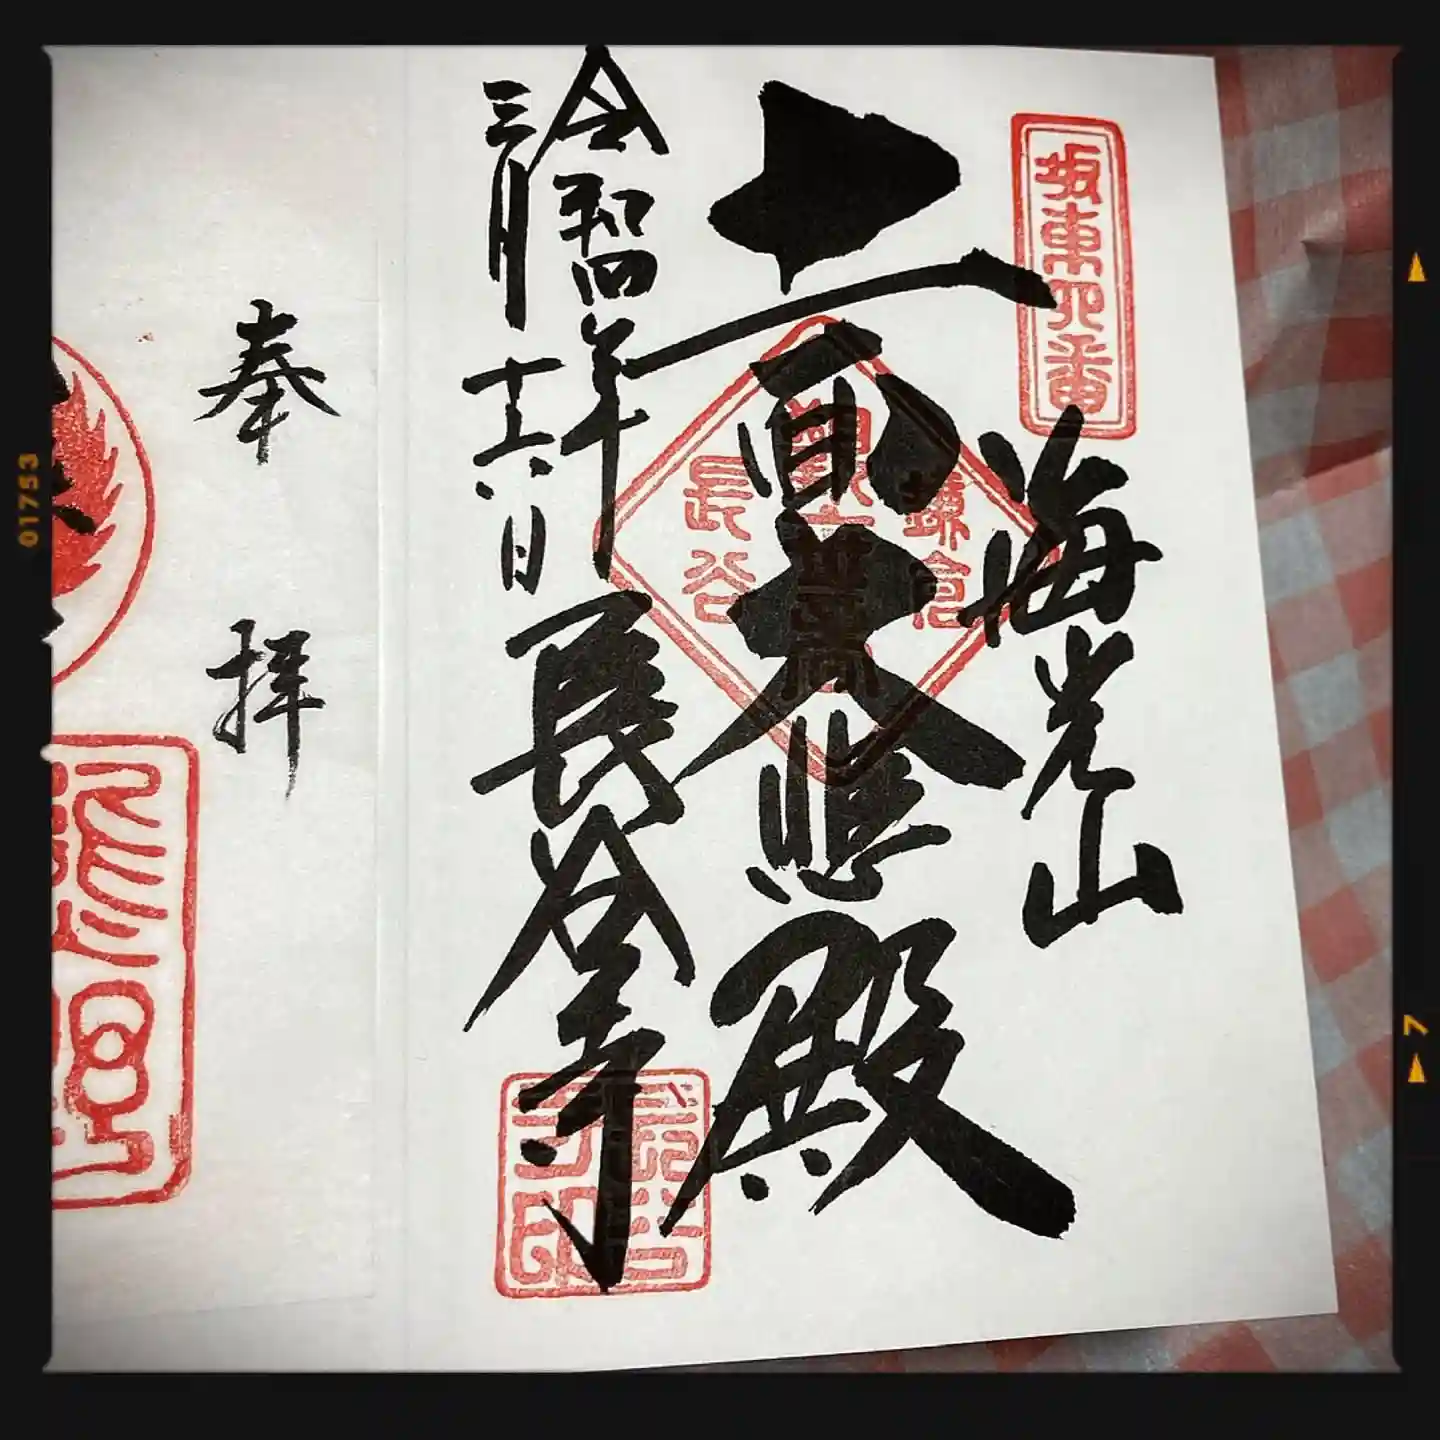 坂東四番
海光山
十一面大悲殿
鎌倉
観世音
長谷
令和四年
三月十六日
長谷寺
奉拝
01753
7